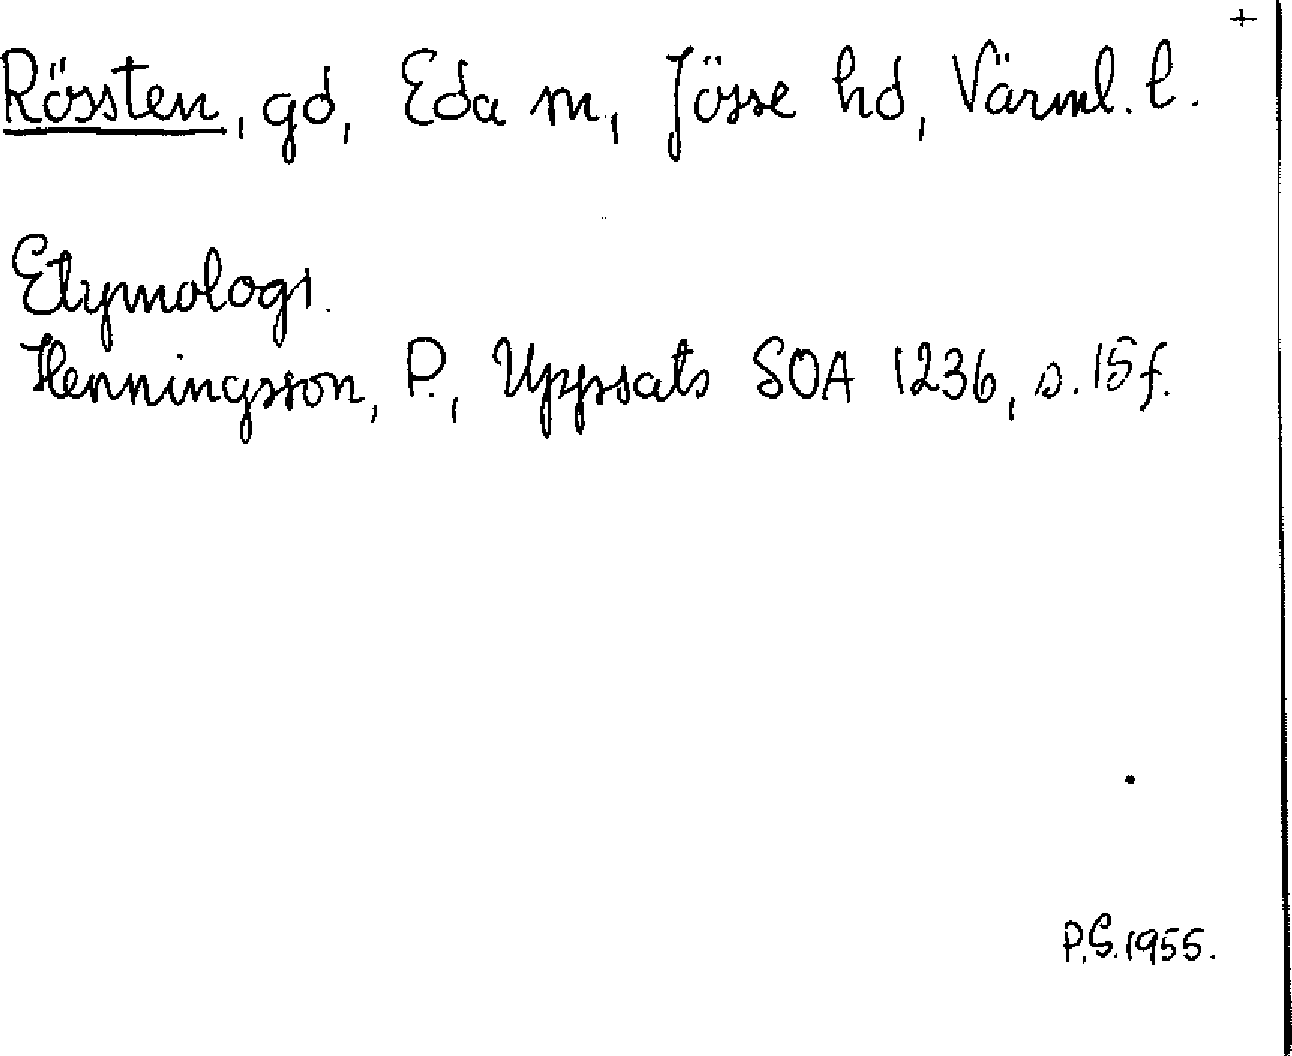 +
Rössten, gd, Eda m, Jösse hd, Värml. l.
Etymologi.
Henningsson, P., Uppsats SOA 1236, s. 15 f.
P.S. 1955.